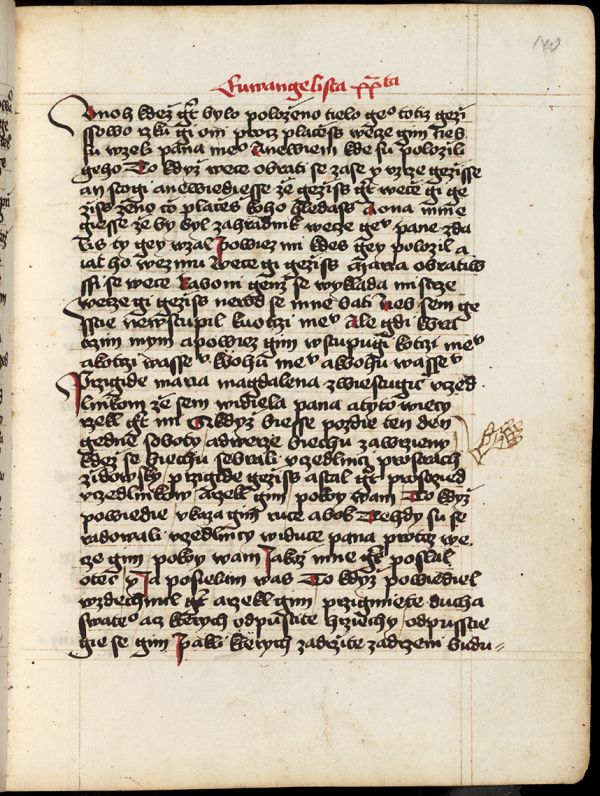 Euwangelista xx^ta
Vnoh kdež gt bylo položeno tielo ge° totiz gezi
ssowo rzku gi oni proz plačess wece gim nebo
su wzeli pana me° Anewiem kde su polozili
geho To když wece obrati se zase y vzrze gezisse
an stogi anewiediesse že gezis gt wece gi ge
žiss ženo čo plačes koho hledass Aona mnie
giesse že by byl zahradnik wece gev pane zda
lis ty gey wzal Powiez mi kdes gey polozil a
iat ho wezmu Wece gi geziss maria obratiw
ssi se wece Raboni genž se wyklada mistrze
wecze gi geziss nerod se mne bati neb sem ge
sscie newstupil kuotczi mev Ale gdi kbra
trzim mym apowiez gim wstupugi kotczi mev
akotczi wassev kbohu mev akbohu wassev
Przigide maria magdalena zwiestugic vczed
lnikom že sem widiela pana atyto wiecy
rzekl gt mi Když biesse pozdie ten den
gedne soboty adwerze biechu zawrzieny
kdež se biechu sebrali vczedlnici prostrach
židowsky przigide geziss astal gt prostrzed
vczedlnikow arzekl gim pokoy wam To když
powiedie vkaza gim ruce abok Tehdy su se
radowali vczedlnicy widuce pana protoz we
cze gim pokoy wam Jakož mne gt poslal
otec y Ja posielam was To když powiediel
wzdechnul gt arzekl gim przigmiete ducha
swate° acz kterych odpustite hrziechy odpusscie
gie se gim Pakli kterych zadržite zadrzeni budu=